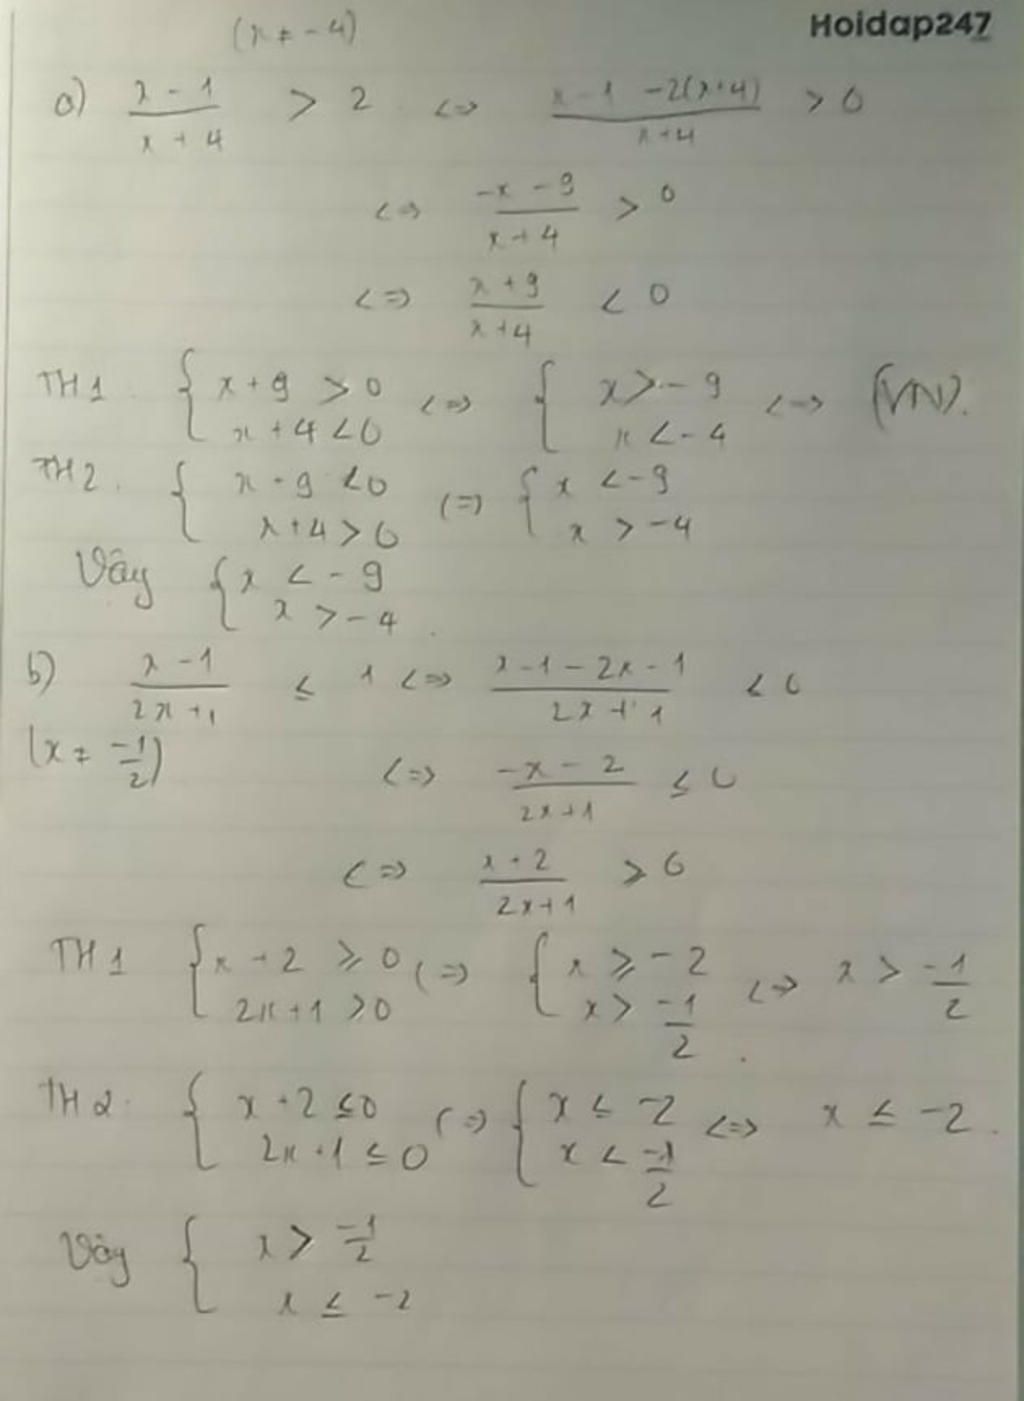 (x ≠ -4)
Hoidap247
a) x - 1 / x + 4 > 2 <=> x - 1 - 2(x+4) / x+4 > 0
<=> -x - 9 / x + 4 > 0
<=> x + 9 / x + 4 < 0
TH1. { x + 9 > 0 <=> { x > -9 <=> (VN).
x + 4 < 0 x < -4
TH2. { x + 9 < 0 (=) { x < -9
x + 4 > 0 x > -4
Vậy { x < -9
x > -4.
b) x - 1 / 2x + 1 ≤ 1 <=> x - 1 - 2x - 1 / 2x + 1 < 0
(x ≠ -1/2)
<=> -x - 2 / 2x+1 ≤ 0
<=> x + 2 / 2x+1 ≥ 0
TH1 { x + 2 ≥ 0 (=) { x ≥ -2 <=> x > -1/2
2x + 1 > 0 x > -1/2.
TH2. { x + 2 ≤ 0 (=) { x ≤ -2 <=> x ≤ -2.
2x + 1 ≤ 0 x < -1/2
Vậy { x > -1/2
x ≤ -2